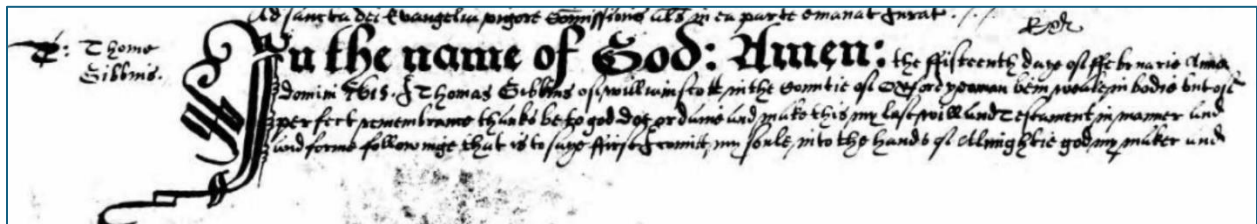 Ad sancta dei Evangelia vigore Comissionis als in ea parte emanat Jurat
T: Thome
Gibbins.
In the name of God: Amen: the ffifteenth daye of ffebruarie Anno
Domini 1615. I Thomas Gibbins of williamscott in the Countie of Oxford yeoman bein weake in bodie but of
perfect remembrance thanks be to god doe ordaine and make this my last will and Testament in manner and
and forme followinge that is to saye ffirst I comitt my soule into the hands of Almightie god my maker and